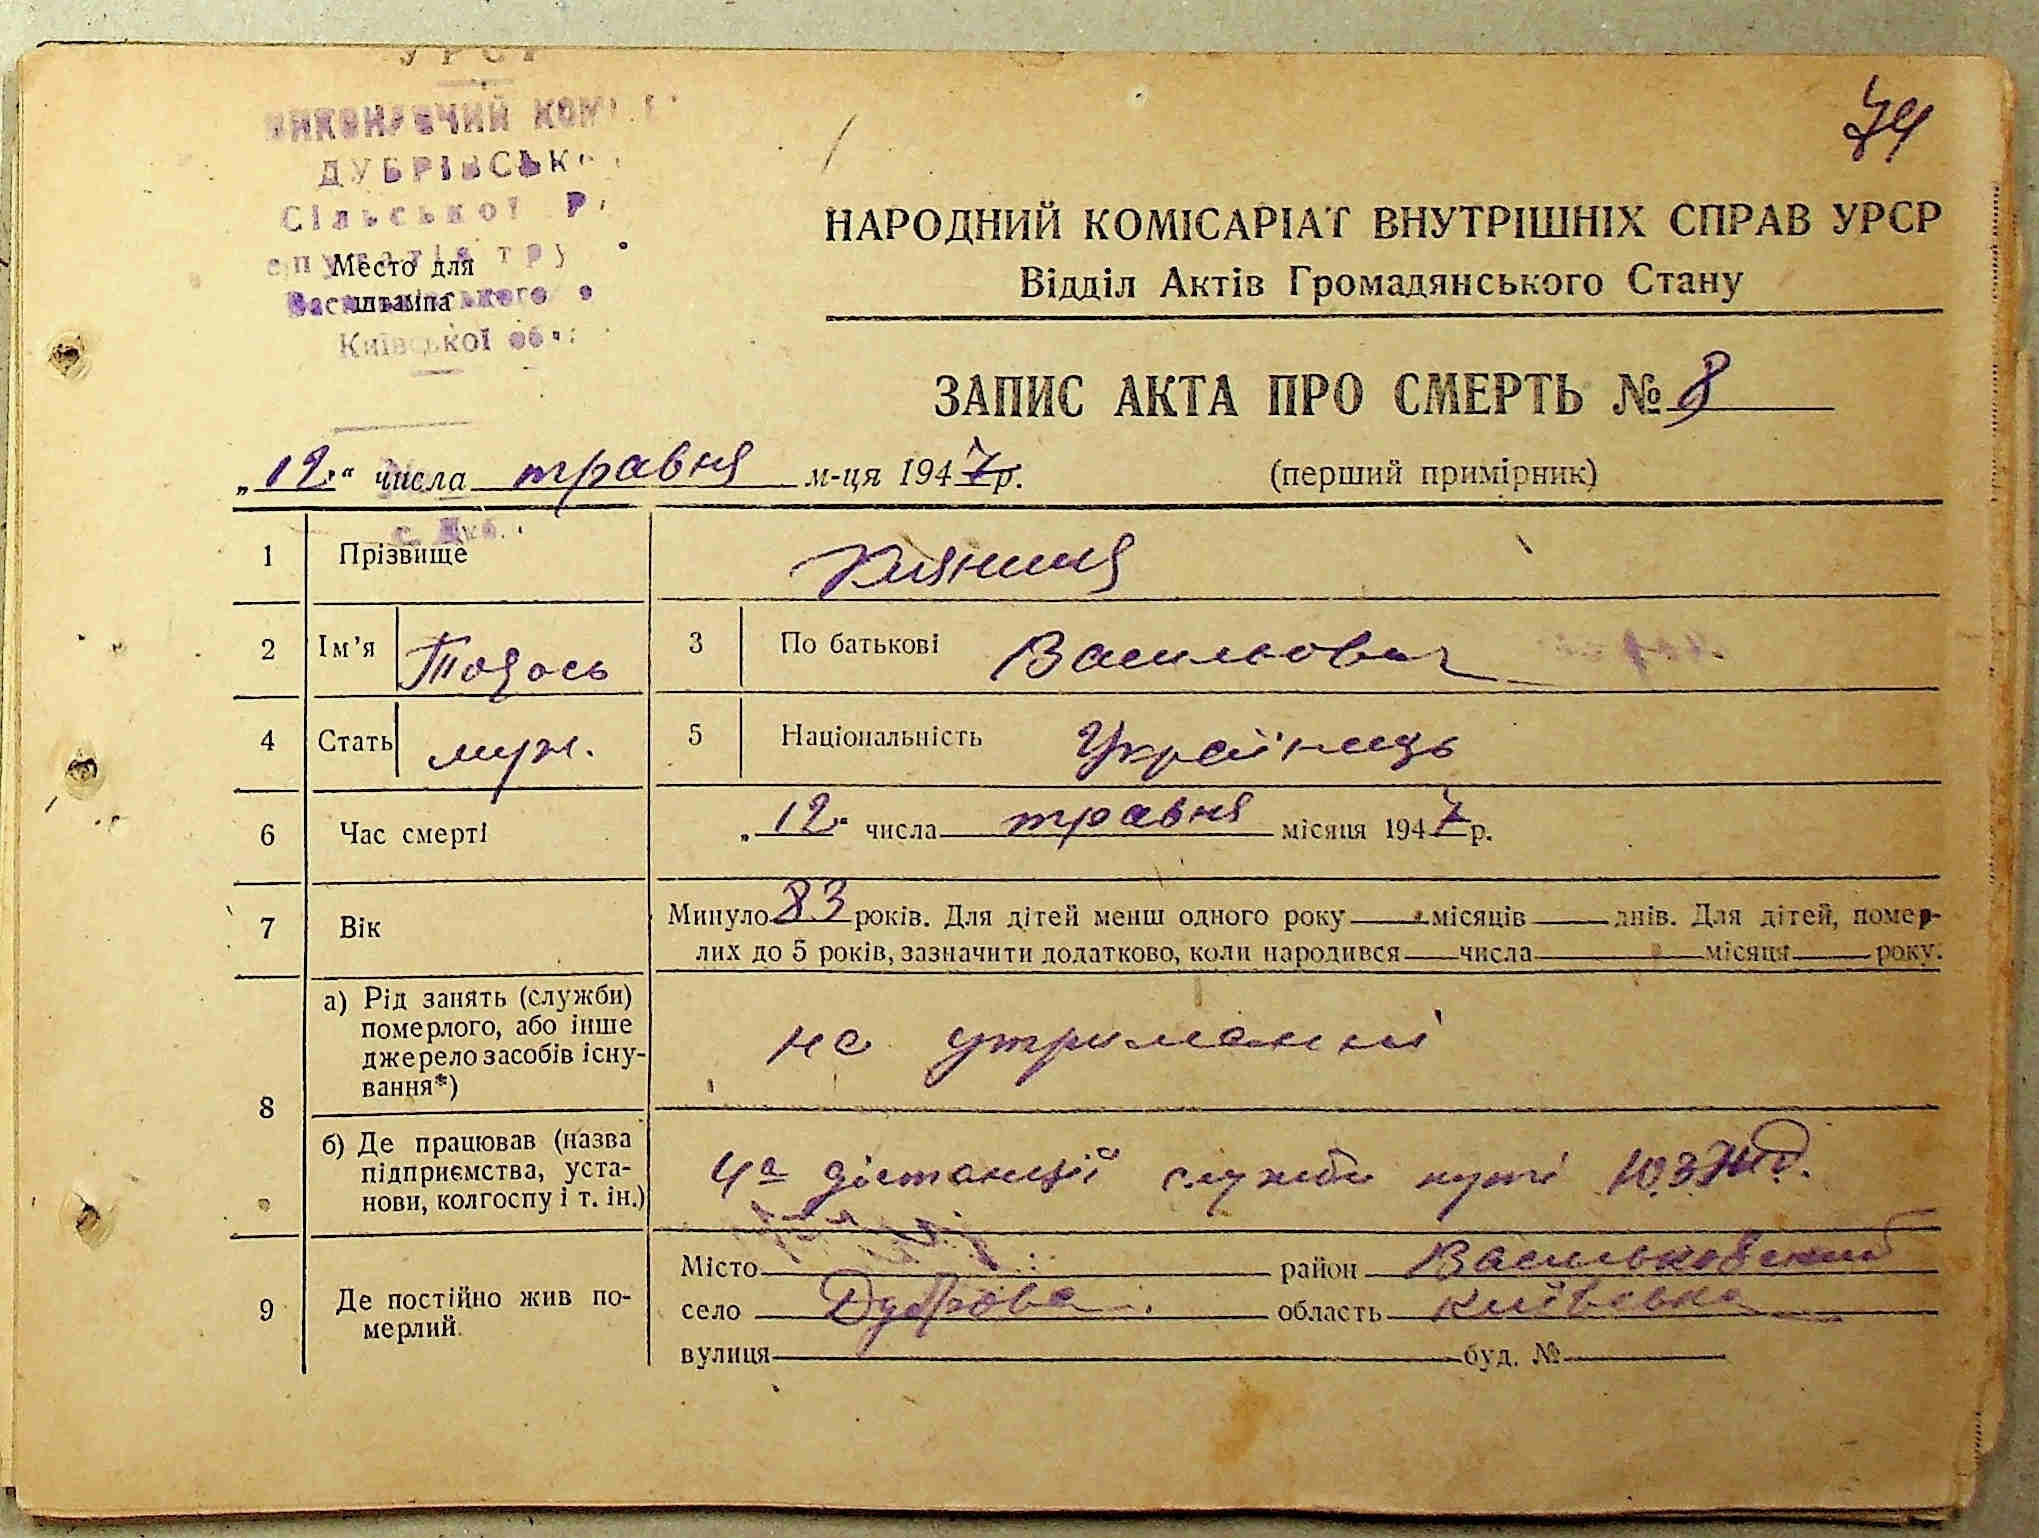 УРСР
ВИКОНАВЧИЙ КОМ
ДУБРІВСЬКО
Сільської Р
тру
Место для
Васильківського
штампа
Київської об
74
НАРОДНИЙ КОМІСАРІАТ ВНУТРІШНІХ СПРАВ УРСР
Відділ Актів Громадянського Стану
ЗАПИС АКТА ПРО СМЕРТЬ № 8
„12“ числа травня м-ця 1947 р.
(перший примірник)
1 Прізвище
2 Ім’я Тодось 3 По батькові Васильович
4 Стать муж. 5 Національність Українець
6 Час смерті „12“ числа травня місяця 1947 р.
7 Вік Минуло 83 років. Для дітей менш одного року місяців днів. Для дітей, помер-
лих до 5 років, зазначити додатково, коли народився числа місяця року.
8 а) Рід занять (служби)
померлого, або інше
джерело засобів існу-
вання*)
на утриманні
б) Де працював (назва
підприємства, уста-
нови, колгоспу і т. ін.)
4а дістанції служби путі Ю.З.Ж.д.
9 Де постійно жив по-
мерлий.
Місто район Васильковский
село Дуброва область київська
вулиця буд. №